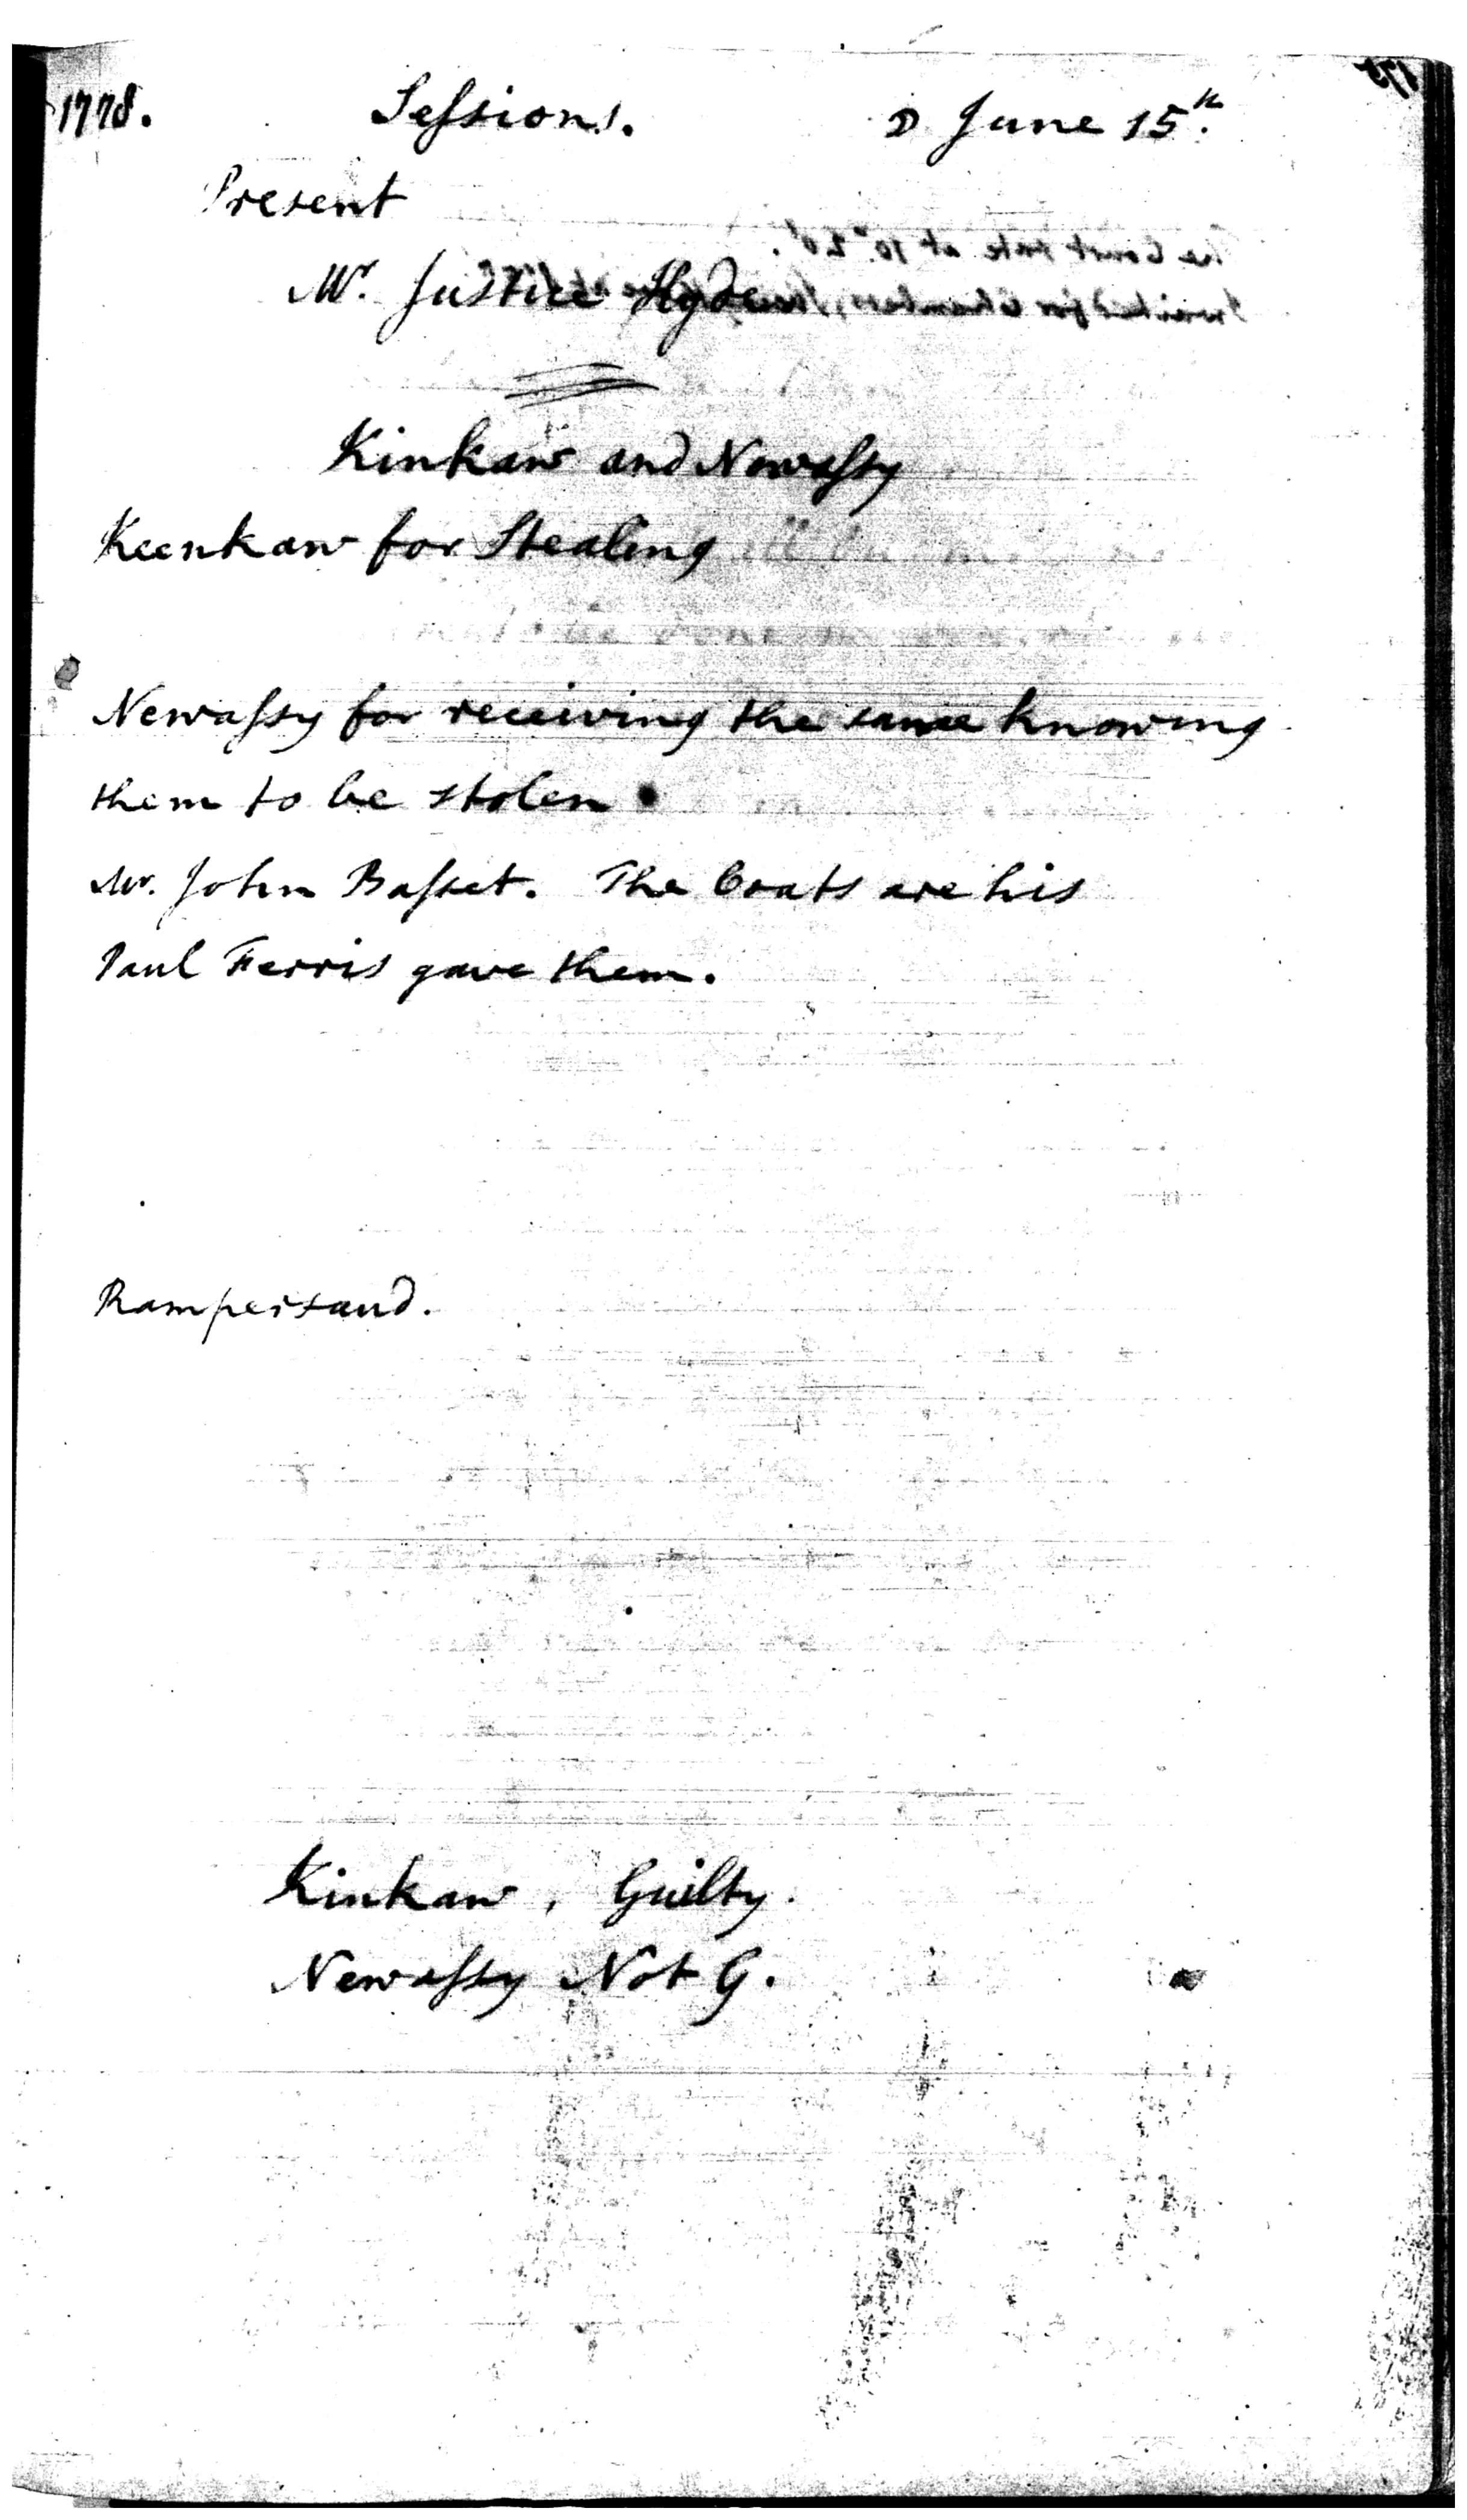 1778. Sessions. ☽ June 15th.
Present
Mr. Justice Hyde
Kinkaw and Newassy
Keenkaw for Stealing
Newassy for receiving the same knowing
them to be stolen
Mr. John Basset. The Coats are his
Paul Ferris gave them.
Rampersaud.
Kinkaw, Guilty.
Newassy Not G.